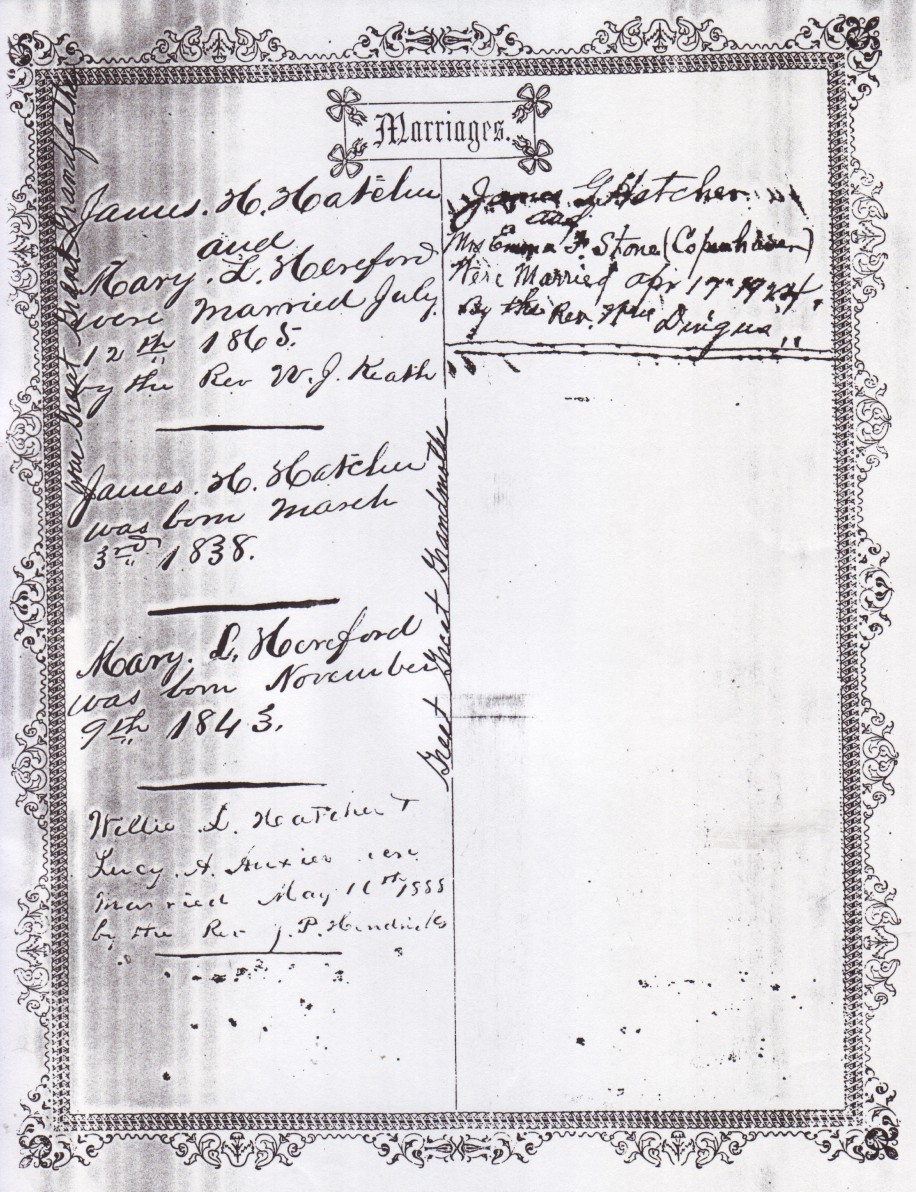 Marriages.
James. H. Hatcher
and
Mary. L. Hereford
were married July
12th 1865.
by the Rev W. J. Keath
James. H. Hatcher
was born March
3rd 1838.
Mary. L. Hereford
was born November
9th 1843.
Willie L. Hatcher
Lucy A. Auxier were
married May 1888
by the Rev J. P. Hendricks
your Great Great Grandfather
Great Great Grandmother
James G Hatcher
and
Mrs Emma F. Stone (Copenhaver)
Were Married Apr 17th 1924.
By the Rev. Dingus